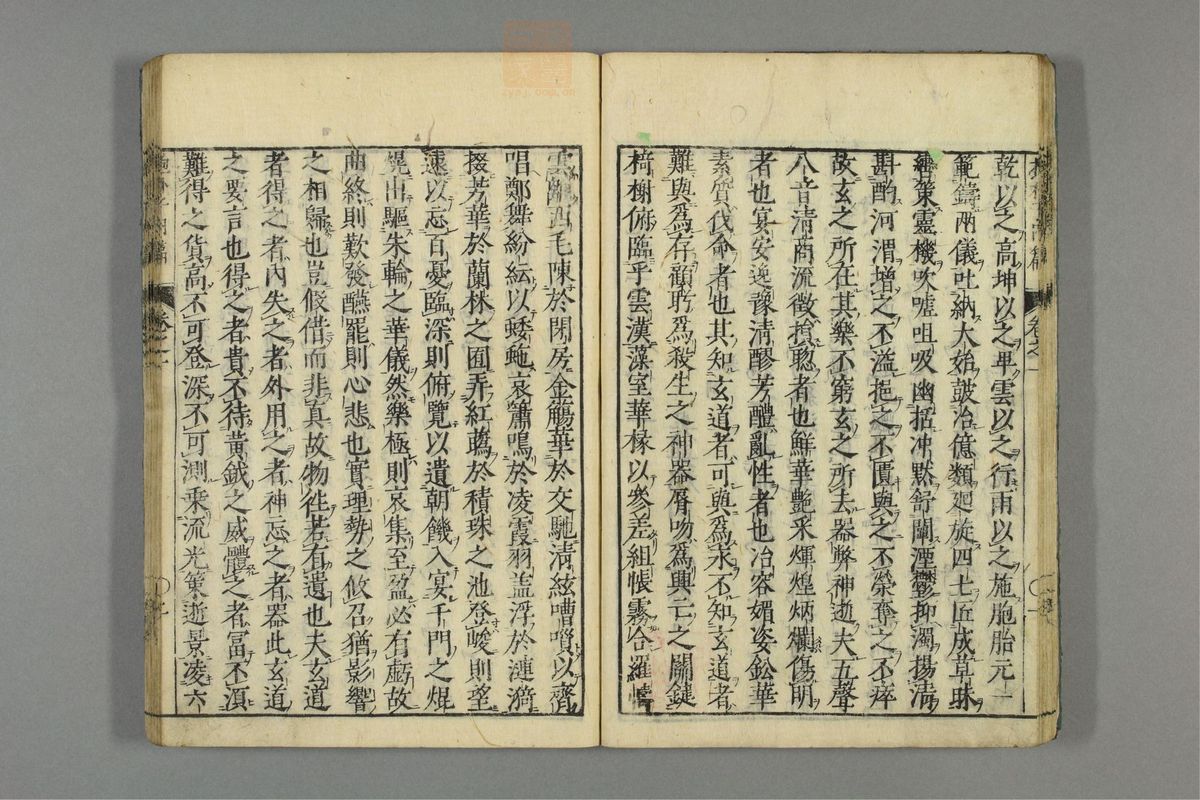 乾以之高坤以之卑雲以之行雨以之施胞胎元一
範鑄兩儀吐納大始鼓冶億類廻旋四七匠成草昧
轡策靈機吹噓呾吸幽括冲黙舒闡湮鬱抑濁揚清
斟酌河渭增之不溢挹之不匱與之不榮奪之不瘁
故玄之所在其樂不窮玄之所去器弊神逝夫五聲
八音清商流徵損聰者也鮮華艶采煇煌炳爛傷明
者也宴安逸豫清醪芳醴亂性者也冶容媚姿鈆華
素質伐命者也其知玄道者可與爲永不知玄道者
難與爲存顧眄爲殺生之神器脣吻爲興亡之關鍵
椅榭俯臨乎雲漢藻室華椽以參差組帳霧合羅幬
雲離西毛陳於閑房金觴華於交馳清絃嘈囋以齊
唱鄭舞紛紜以蜲蛇哀簫鳴於凌霞羽盖浮於漣漪
掇芳華於蘭林之囿弄紅蘤於積珠之池登峻則望
遠以忘百憂臨深則俯覽以遺朝饑入宴千門之焜
熀出驅朱輪之華儀然樂極則哀集至盈必有虧故
曲終則歎發醼罷則心悲也實理勢之攸召猶影響
之相歸也豈假借而非眞故物徃若有遺也夫玄道
者得之者内失之者外用之者神忘之者器此玄道
之要言也得之者貴不待黃鉞之威體之者冨不湏
難得之貨高不可登深不可測乗流光策逝景凌六
卷之一